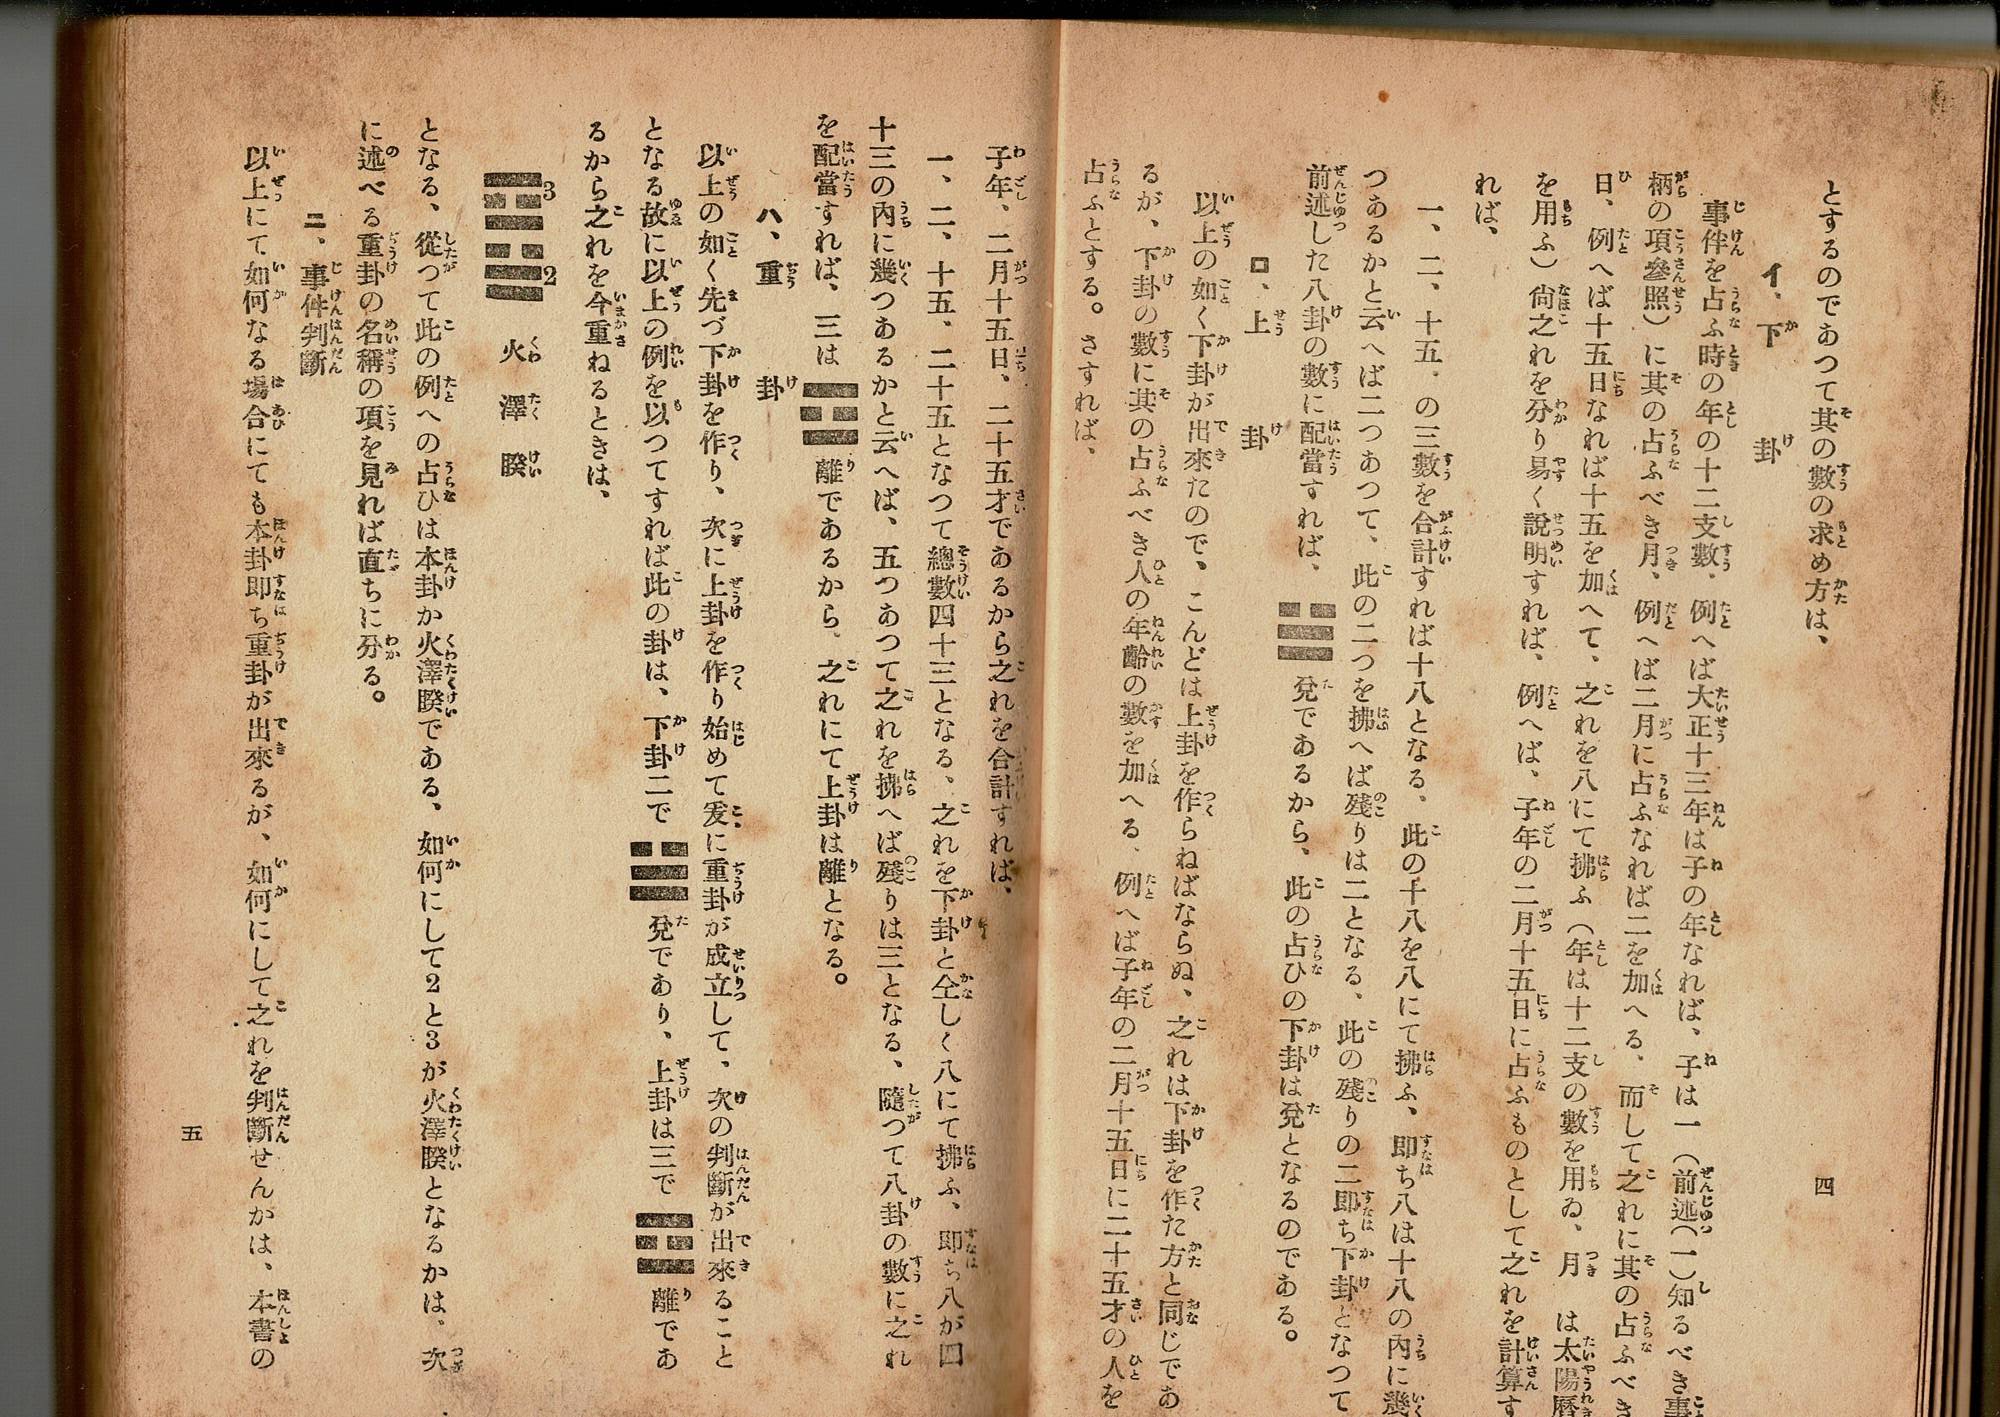 とするのであつて其の數の求め方は、
イ、下　卦
事件を占ふ時の年の十二支數、例へば大正十三年は子の年なれば、子は一（前述（一）知るべき事
柄の項參照）に其の占ふべき月、例へば二月に占ふなれば二を加へる、而して之れに其の占ふべき
日、例へば十五日なれば十五を加へて、之れを八にて拂ふ（年は十二支の數を用ゐ、月　は太陽曆
を用ふ）尙之れを分り易く說明すれば、例へば、子年の二月十五日に占ふものとして之れを計算す
れば、
一、二、十五、の三數を合計すれば十八となる、此の十八を八にて拂ふ、即ち八は十八の內に幾
つあるかと云へば二つあつて、此の二つを拂へば殘りは二となる、此の殘りの二即ち下卦となつて
前述した八卦の數に配當すれば、☱兌であるから、此の占ひの下卦は兌となるのである。
ロ、上　卦
以上の如く下卦が出來たので、こんどは上卦を作らねばならぬ、之れは下卦を作た方と同じであ
るが、下卦の數に其の占ふべき人の年齡の數を加へる、例へば子年の二月十五日に二十五才の人を
占ふとする。さすれば、
四
子年、二月十五日、二十五才であるから之れを合計すれば、
一、二、十五、二十五となつて總數四十三となる、之れを下卦と仝しく八にて拂ふ、即ち八が四
十三の內に幾つあるかと云へば、五つあつて之れを拂へば殘りは三となる、隨つて八卦の數に之れ
を配當すれば、三は☲離であるから、之れにて上卦は離となる。
ハ、重　卦
以上の如く先づ下卦を作り、次に上卦を作り始めて爰に重卦が成立して、次の判斷が出來ること
となる故に以上の例を以つてすれば此の卦は、下卦二で☱兌であり、上卦は三で☲離であ
るから之れを今重ねるときは、
3 2 火澤睽
となる、從つて此の例への占ひは本卦か火澤睽である、如何にして2と3が火澤睽となるかは、次
に述べる重卦の名稱の項を見れば直ちに分る。
ニ、事件判斷
以上にて如何なる場合にても本卦即ち重卦が出來るが、如何にして之れを判斷せんかは、本書の
五